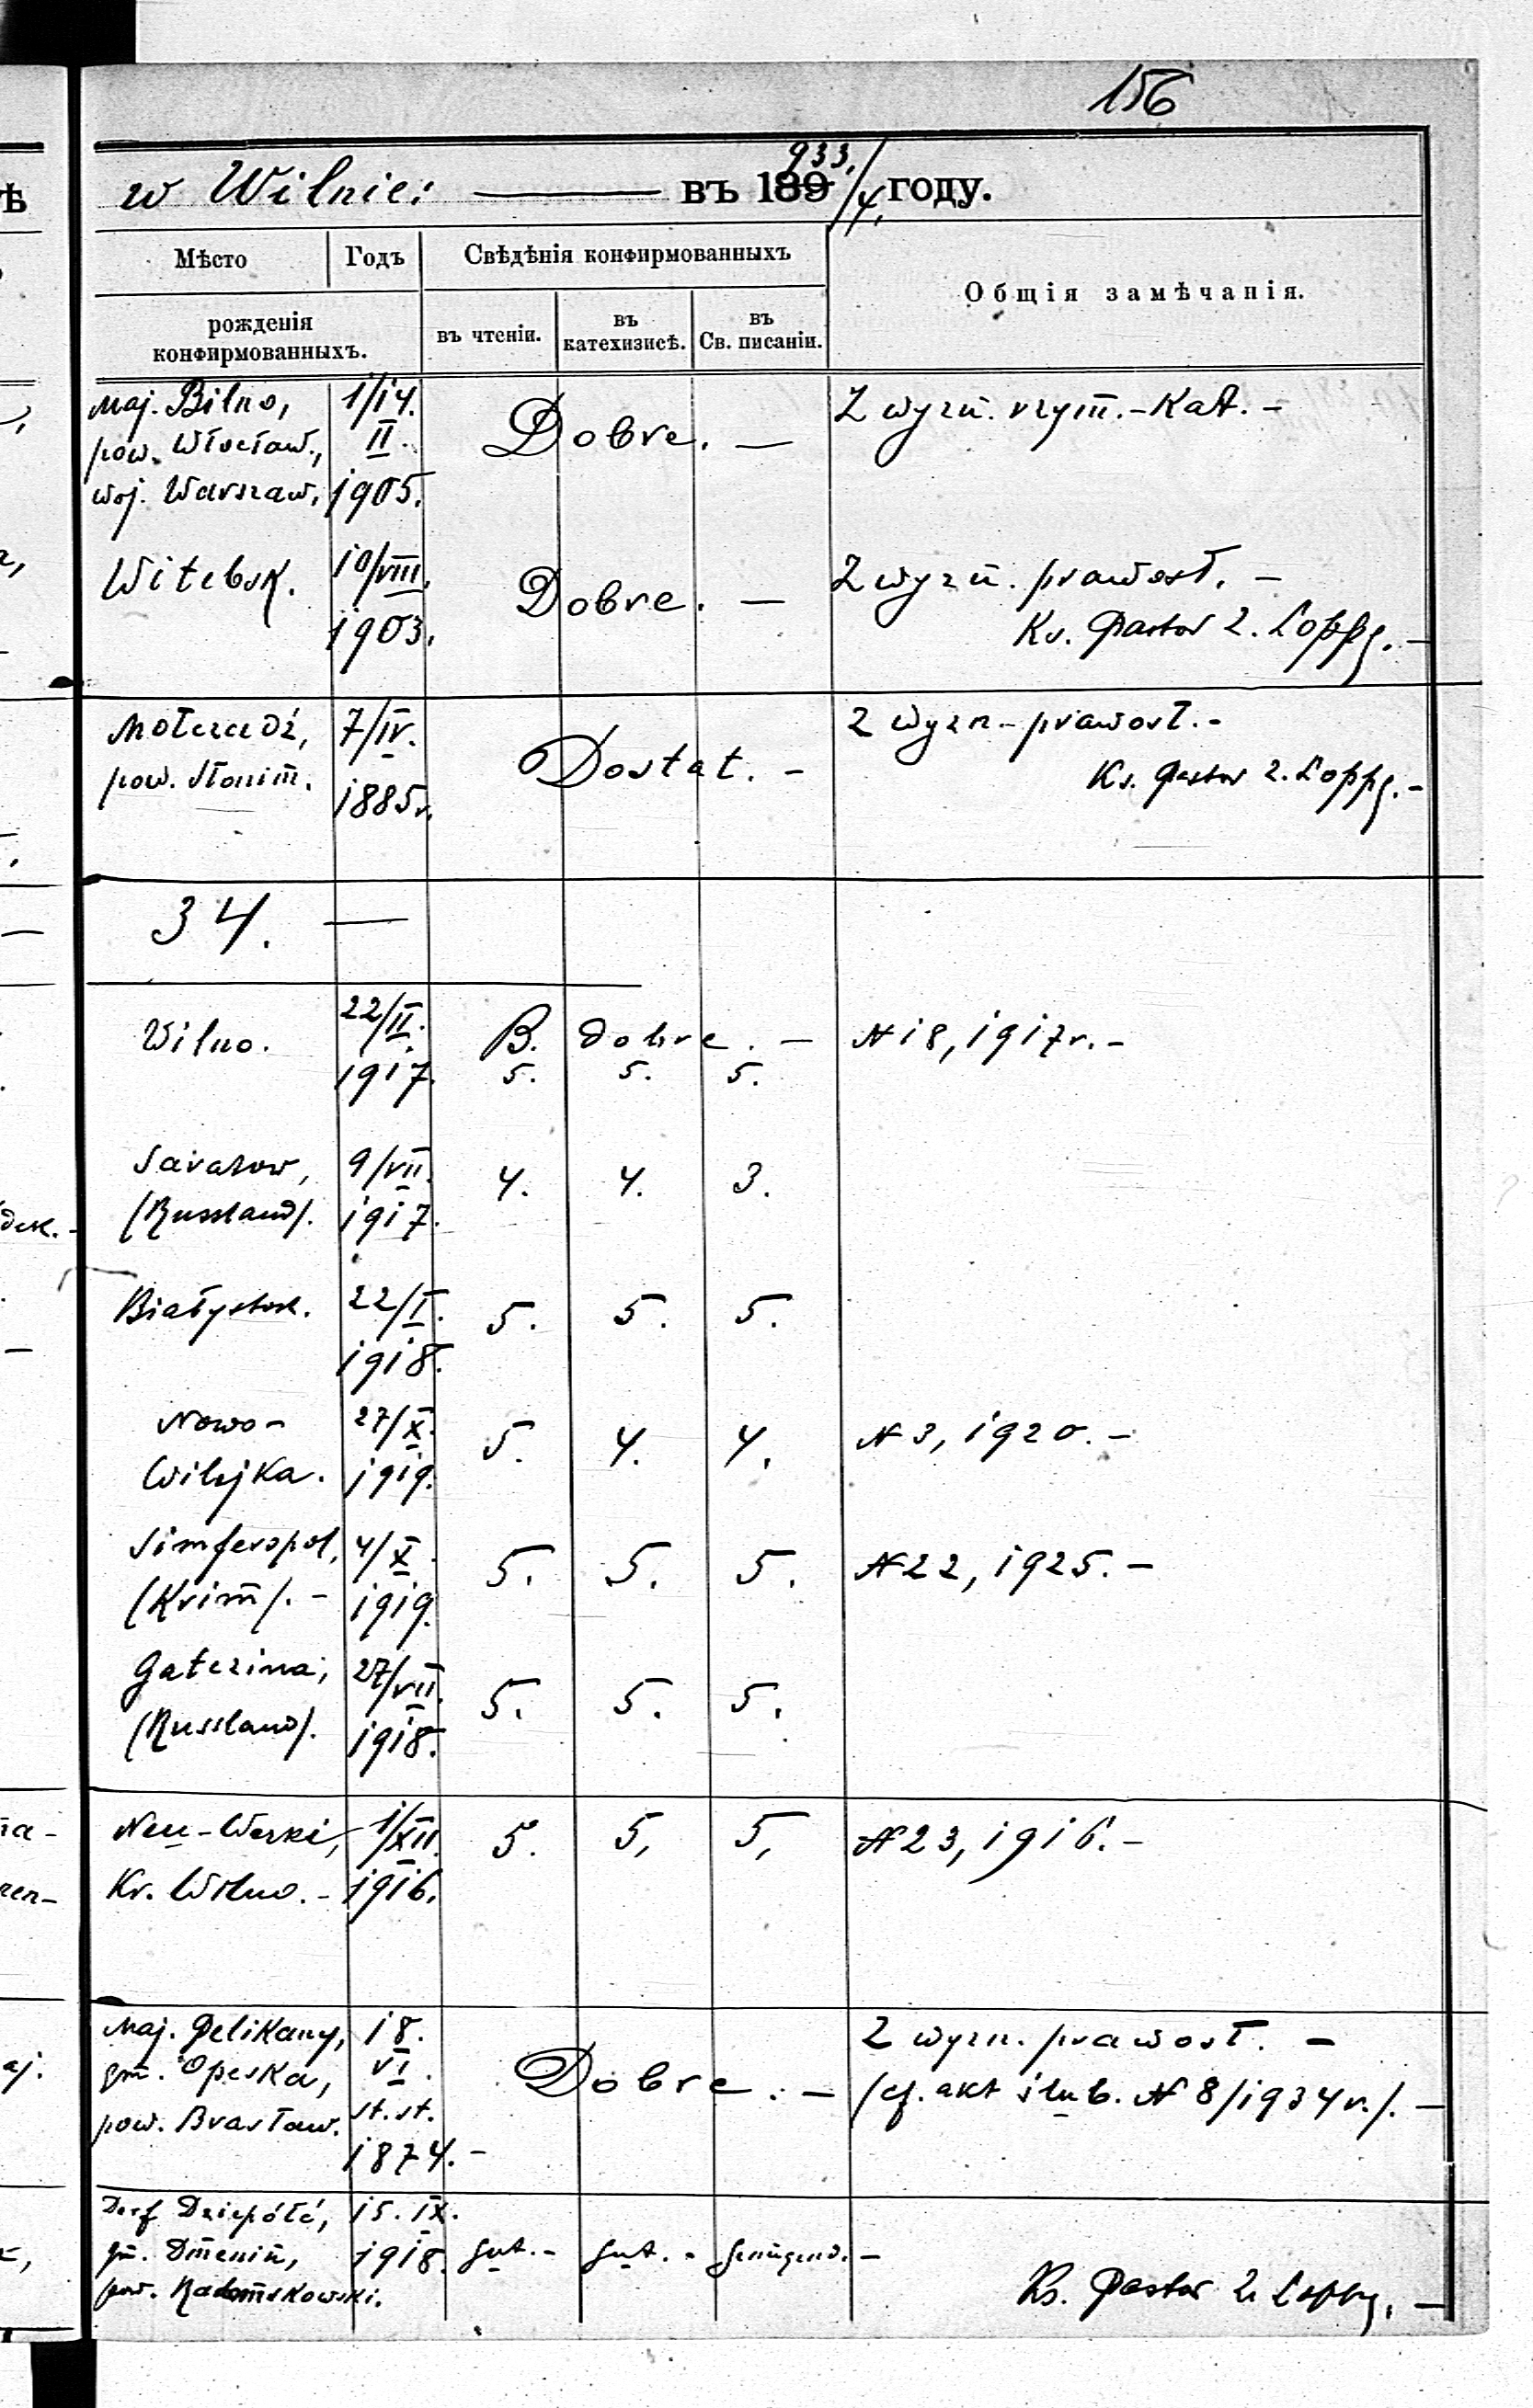 156
w Wilnie: — въ 189 933./4. году.
Мѣсто
Годъ
Свѣдѣнія конфирмованныхъ
Общія замѣчанія.
рожденія
конфирмованныхъ.
въ чтеніи.
въ катехизисѣ.
въ Св. писаніи.
Maj. Bilno, 1/14.
pow. Włocław., II.
woj. Warszaw. 1905.
Dobre. —
Z wyzn. rzym.-Kat. –
Witebsk. 10/VIII.
1903.
Dobre. —
Z wyzn. prawosł. –
Ks. Pastor Loppe. –
Mołczadź, 7/IV.
pow. Słonim. 1885r.
Dostat. –
Z wyzn. prawosł. –
Ks. Pastor Loppe. –
34. —
Wilno. 22/II. B. dobre. — N 18, 1917r. –
1917. 5. 5. 5.
Saratow, 9/VII. 4. 4. 3.
(Russland). 1917.
Białystok. 22/I. 5. 5. 5.
1918.
Nowo- 27/X. 5. 4. 4. N 3, 1920. –
Wilejka. 1919.
Simferopol, 4/X. 5. 5. 5. N 22, 1925. –
(Krim). – 1919.
Gatczina, 27/VII. 5. 5. 5.
(Russland). 1918.
Neu-Werki, 1/XII. 5. 5, 5, N 23, 1916. –
Kr. Wilno. – 1916.
Maj. Pelikany, 18. Z wyzn. prawosł. –
gm. Opeska, VI. Dobre. – (cf. akt ślub. N 8/1934 r.). –
pow. Brasław. st. st.
1874. –
Dorf Dziepółć, 15. IX.
gm. Dmenin, 1918. gut. – gut. – genügend. –
pow. Radomskowski.
Ks. Pastor Loppe. –